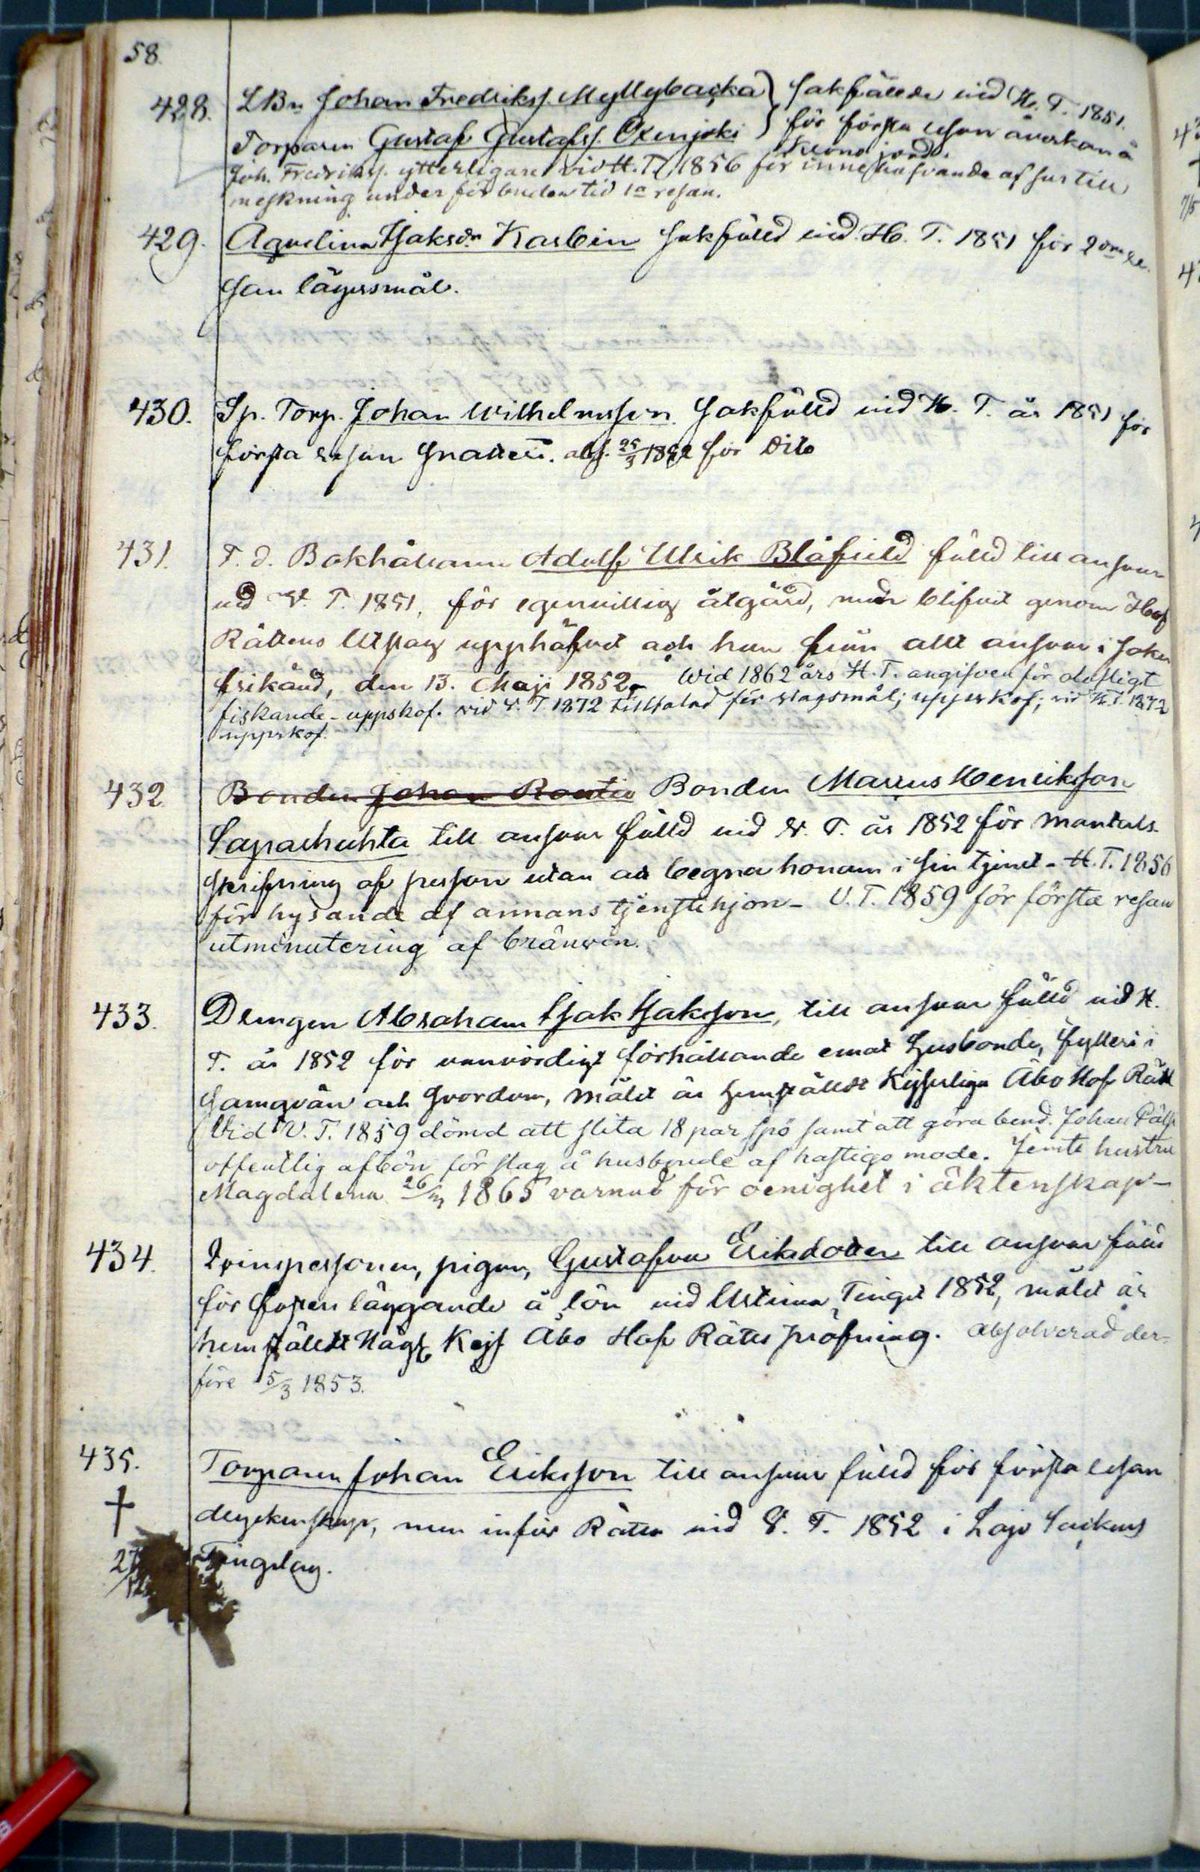 58.
428. LBn Johan Fredrikss. Myllybacka } Sakfällde vid H. T. 1851.
Torparen Gustaf Gustafss. Oxenjoki } för första resan åverkan å
Krono jord.
Joh. Fredrikss. ytterligare vid H. T. 1856 för innehafvande af sur till
meskning under förbuden tid 1a resan.
429. Aqvelina Isaksdr Karbin sakfälld vid H. T. 1851 för 2dra re-
san lägersmål.
430. Sp. Torp. Johan Wilhelmsson sakfälld vid H. T. år 1851 för
första resan snatteri. abs. 25/3 1852 för Dito
431. F. d. Bokhållaren Adolf Ulrik Blåfield fälld till ansvar
vid T. 1851, för egenvillig åtgärd, men blifvit genom Hof
Rättens Utslag upphäfvet och han från allt ansvar i saken
frikänd, den 13. Maji 1852. Wid 1862 års H. T. angifven för olofligt
fiskande - uppskof. vid V. T. 1872 tilltalad för slagsmål; uppskof; vid H. T. 1872
uppskof.
432 Bonden Johan Bonden Marcus Henriksson
till ansvar fälld vid V. T. år 1852 för mantals-
skrifning af person utan att begagna honom i sin tjenst - H. T. 1856
för hysande af annans tjenstehjon - V. T. 1859 för första resan
utminutering af bränvin.
433. Drengen Abraham Isak Isaksson, till ansvar fälld vid H.
T. år 1852 för vanvördigt förhållande emot husbonde, fylleri i
samqväm och svordom, målet är hemstäldt Kejserliga Åbo Hof Rätt
Vid V. T. 1859 dömd att slita 18 par spö samt att göra bond. Johan
offentlig afbön för slag å husbonde af hastigo mode. Jemte hustru
Magdalena 26/ 1865 varnad för oenighet i äktenskap -
434. Qvinspersonen, pigan, Gustafva Eriksdotter till ansvar fälld
för fosters läggande å lön vid Urtima Tinget 1852, målet är
hemstäldt Högl. Kejs Åbo Hof Rätts pröfning. absolverad der-
före 5/3 1853.
435. Torparen Johan Eriksson till ansvar fälld för första resan
dryckenskap, men inför Rätta vid V. T. 1852 i Lojo Socken
† Tingslag.
27/12